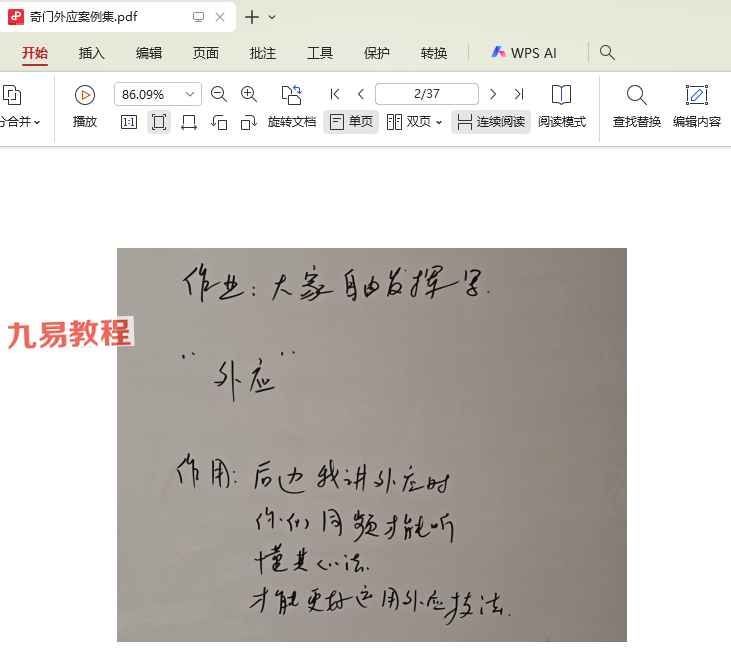 奇门外应案例集.pdf
开始 插入 编辑 页面 批注 工具 保护 转换 WPS AI
86.09% 2/37
分合并 播放 1:1 旋转文档 单页 双页 连续阅读 阅读模式 查找替换 编辑内容
作业：大家自由发挥写.
九易教程
"外应"
作用：后边我讲外应时
你们同频才能听
懂其心法.
才能更好运用外应技法.